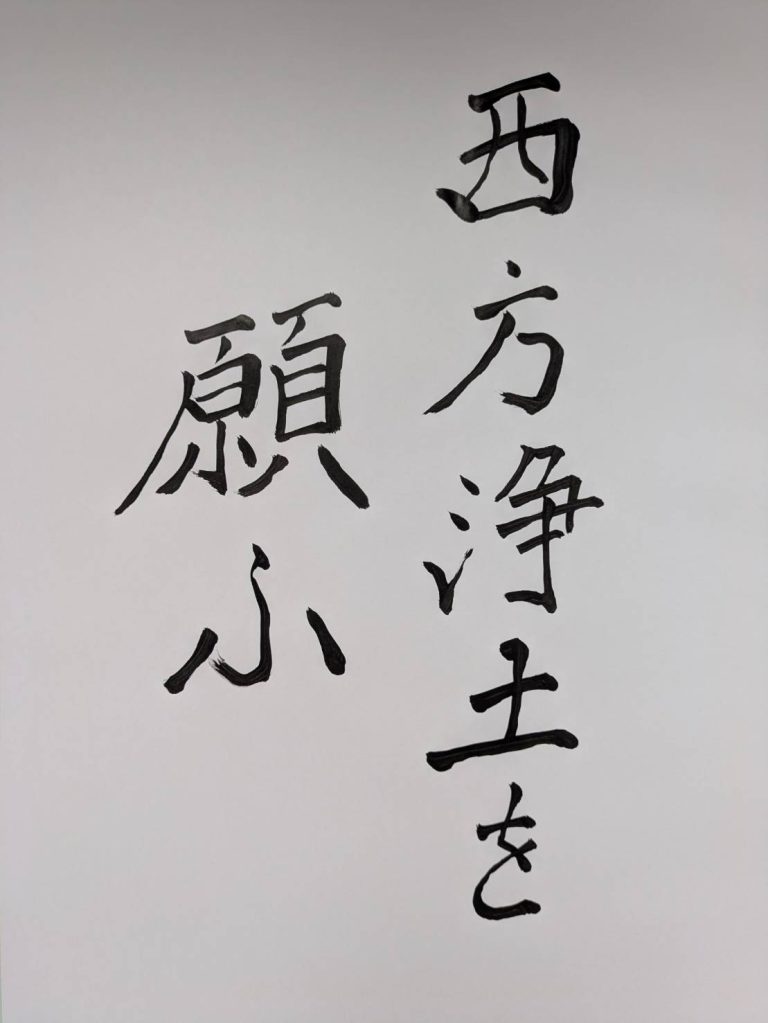 西方浄土を
願ふ